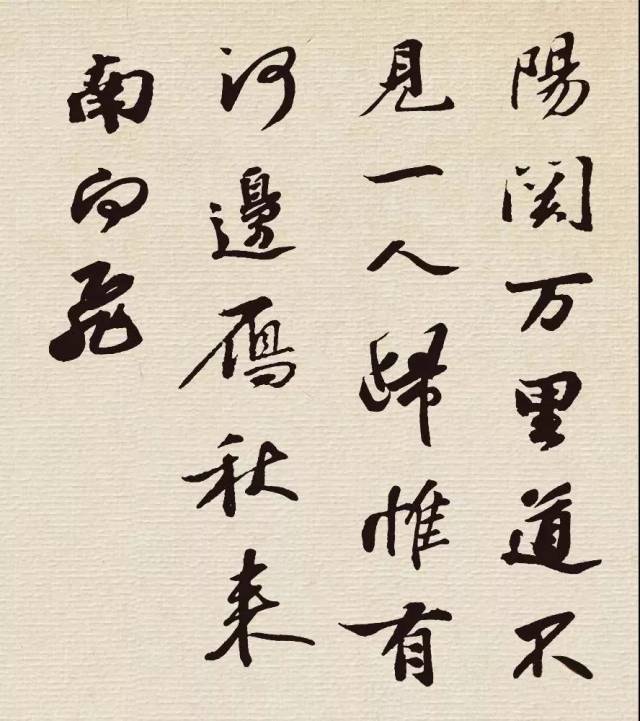 陽関万里道不
見一人歸惟有
河邊雁秋来
南向飛